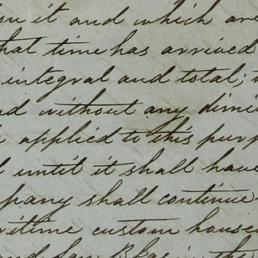 it and which are
that time has arrived
integral and total;
without any dimi
applied to this purp
until it shall have
pany shall continue
ritime custom house